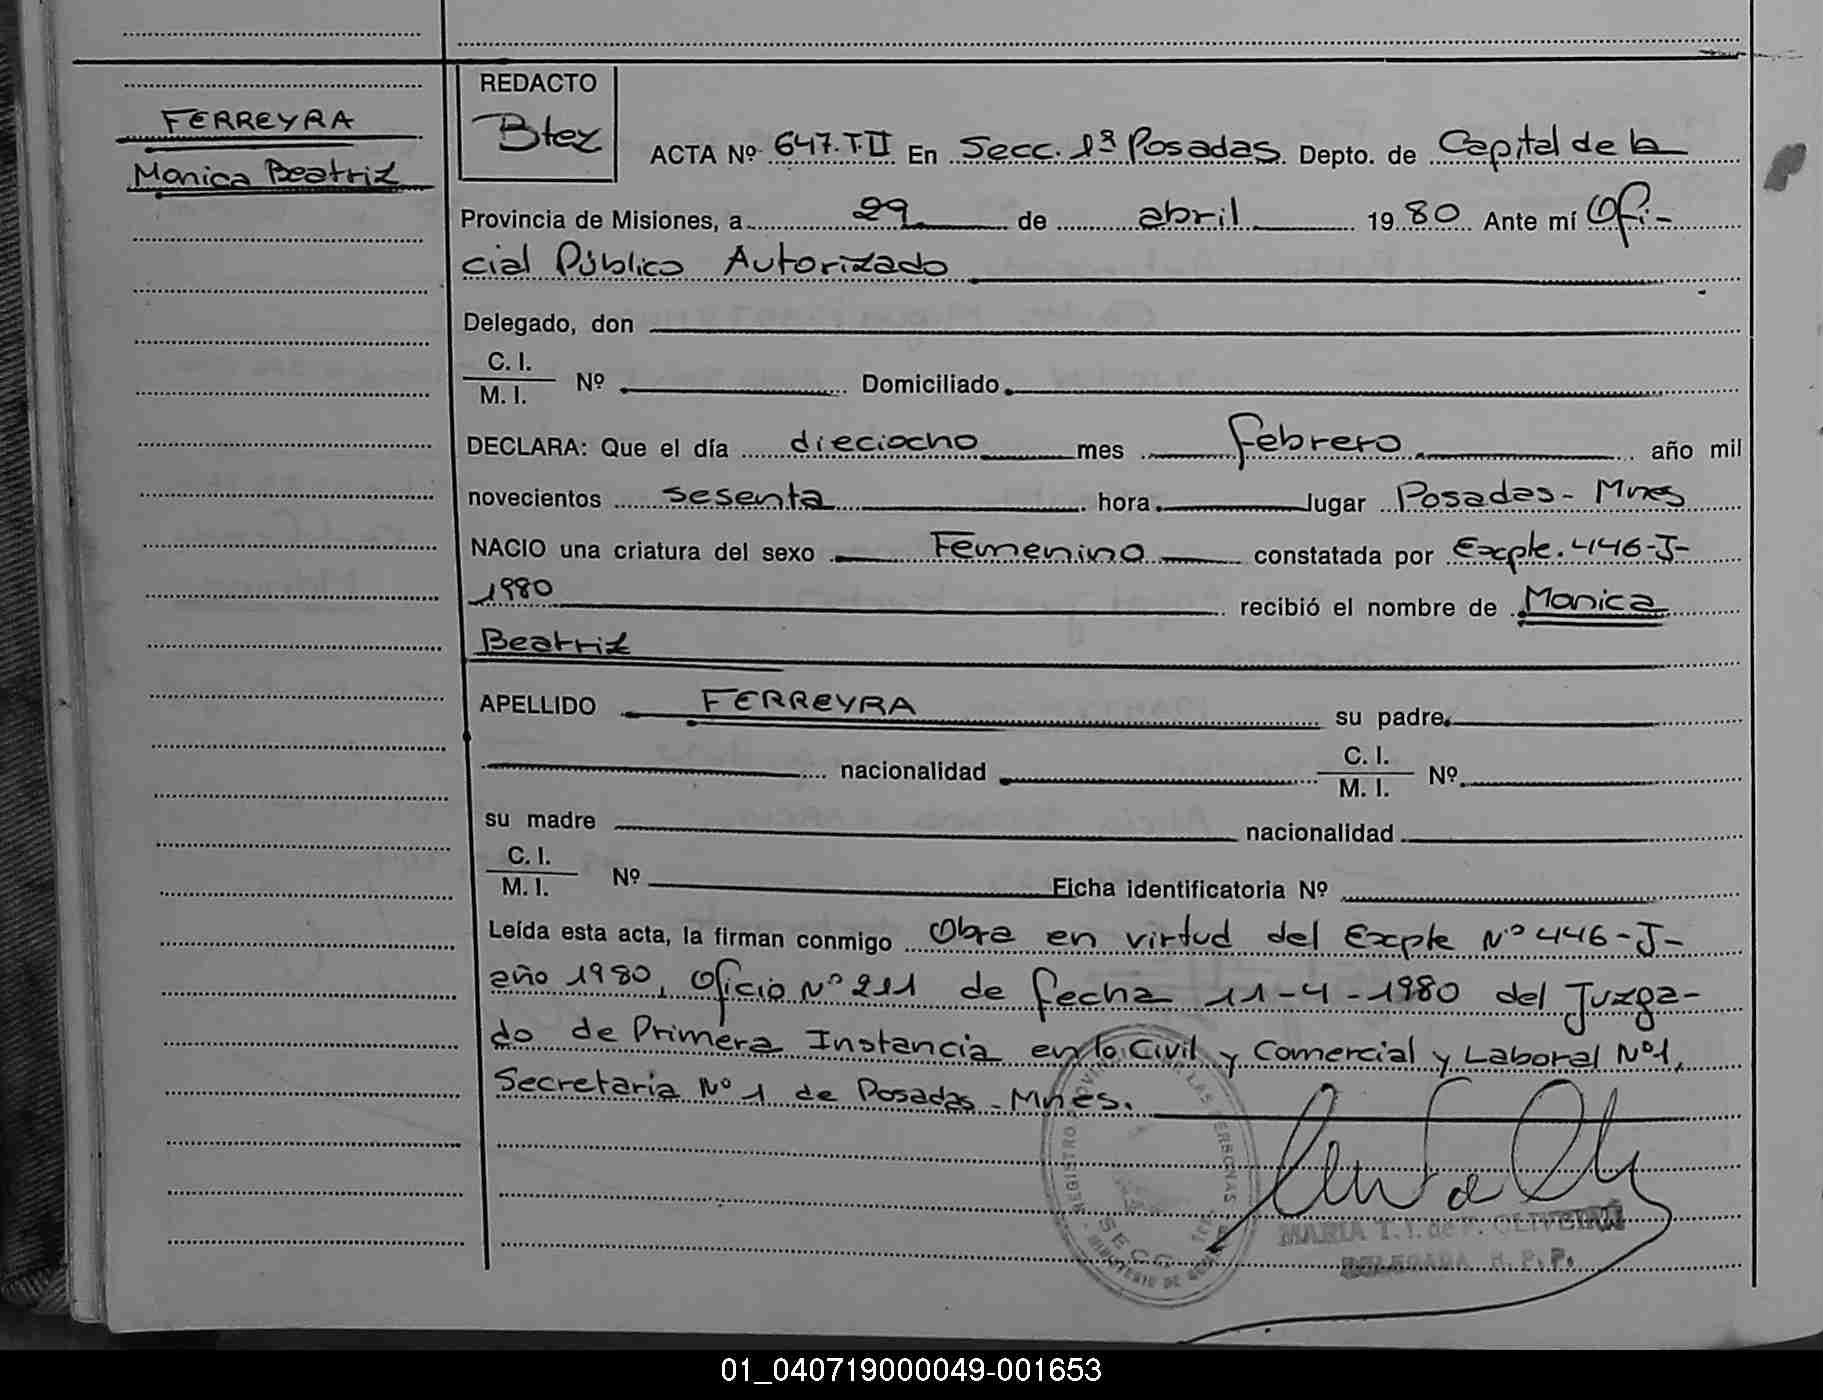 FERREYRA
Monica Beatriz
REDACTO
Btez
ACTA Nº 647.T.II En Secc. 1ª Posadas. Depto. de Capital de la
Provincia de Misiones, a 29 de abril 1980 Ante mí Ofi-
cial Público Autorizado
Delegado, don
C. I.
M. I. Nº Domiciliado
DECLARA: Que el día dieciocho mes febrero año mil
novecientos sesenta hora lugar Posadas - Mnes
NACIO una criatura del sexo Femenino constatada por Excpte. 446-J-
1980 recibió el nombre de Monica
Beatriz
APELLIDO FERREYRA su padre
nacionalidad C. I.
M. I. Nº
su madre nacionalidad
C. I.
M. I. Nº Ficha identificatoria Nº
Leída esta acta, la firman conmigo Obra en virtud del Excpte Nº 446-J-
año 1980, Oficio Nº 211 de fecha 11-4-1980 del Juzga-
do de Primera Instancia en lo Civil y Comercial y Laboral Nº1,
Secretaria Nº 1 de Posadas - Mnes.
REGISTRO LAS PERSONAS
SECC
MINISTERIO DE
MARIA T. I. de P. OLIVEIRA
DELEGADA R. P. P.
01_040719000049-001653